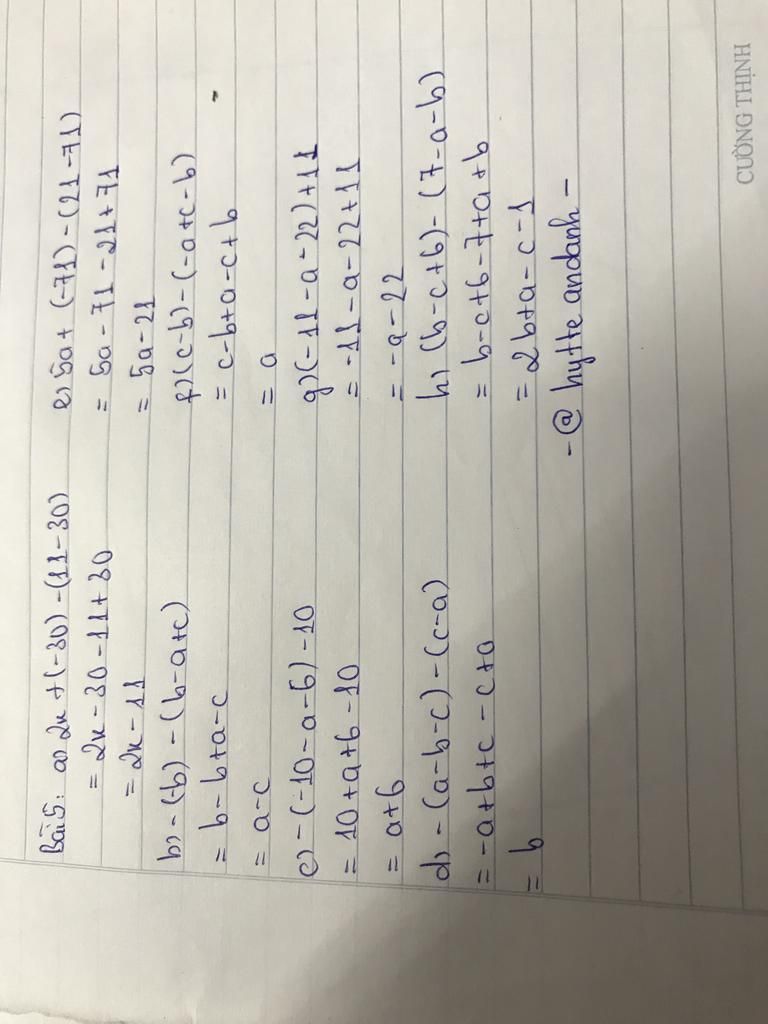 Bài 5: a) 2x + (-30) - (11 - 30)
= 2x - 30 - 11 + 30
= 2x - 11
b) - (-b) - (b - a + c)
= b - b + a - c
= a - c
c) - (-10 - a - 6) - 10
= 10 + a + 6 - 10
= a + 6
d) - (a - b - c) - (c - a)
= -a + b + c - c + a
= b
e) 5a + (-71) - (21 - 71)
= 5a - 71 - 21 + 71
= 5a - 21
f) (c - b) - (-a + c - b)
= c - b + a - c + b
= a
g) (-11 - a - 22) + 11
= -11 - a - 22 + 11
= -a - 22
h) (b - c + 6) - (7 - a - b)
= b - c + 6 - 7 + a + b
= 2b + a - c - 1
- @ hytte andanh -
CƯỜNG THỊNH